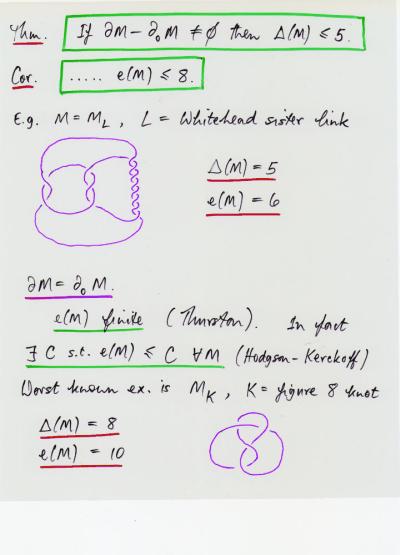 Thm. If ∂M - ∂₀M ≠ ∅ then Δ(M) ≤ 5.
Cor. ..... e(M) ≤ 8.
E.g. M = M_L, L = Whitehead sister link
Δ(M) = 5
e(M) = 6
∂M = ∂₀M.
e(M) finite (Thurston). In fact
∃ C s.t. e(M) ≤ C ∀M (Hodgson-Kerckoff)
Worst known ex. is M_K, K = figure 8 knot
Δ(M) = 8
e(M) = 10